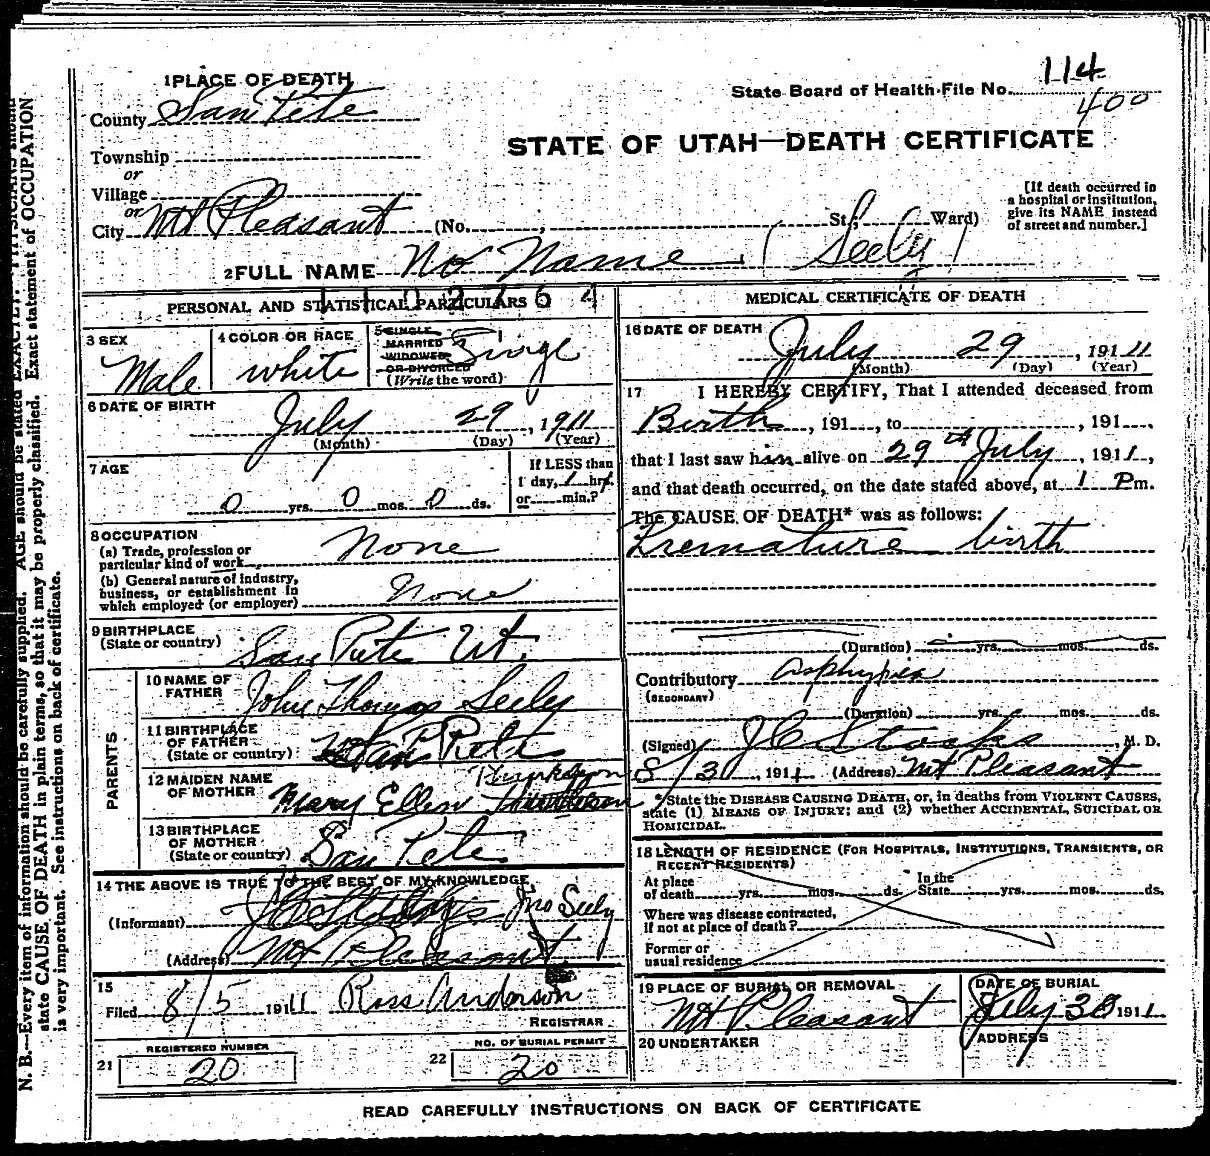 114
State Board of Health File No.
400
STATE OF UTAH—DEATH CERTIFICATE
1 PLACE OF DEATH
County San Pete
Township
or
Village
or
City Mt Pleasant (No. , St., Ward)
[If death occurred in
a hospital or institution,
give its NAME instead
of street and number.]
2 FULL NAME No Name (Seely)
PERSONAL AND STATISTICAL PARTICULARS
3 SEX
Male
4 COLOR OR RACE
white
5 SINGLE
MARRIED
WIDOWED
OR DIVORCED
(Write the word)
Singe
6 DATE OF BIRTH
July 29, 1911
(Month) (Day) (Year)
7 AGE
0 yrs. 0 mos. 0 ds.
If LESS than
1 day, 1 hrs.
or min.?
8 OCCUPATION
(a) Trade, profession or
particular kind of work None
(b) General nature of industry,
business, or establishment in
which employed (or employer) None
9 BIRTHPLACE
(State or country) San Pete Ut.
PARENTS
10 NAME OF
FATHER John Thomas Seely
11 BIRTHPLACE
OF FATHER
(State or country) San Pete
12 MAIDEN NAME
OF MOTHER Mary Ellen
13 BIRTHPLACE
OF MOTHER
(State or country) San Pete
14 THE ABOVE IS TRUE TO THE BEST OF MY KNOWLEDGE
(Informant) Jno Seely
(Address) Mt Pleasant
15
Filed 8/5 1911 Ross Anderson
REGISTRAR
REGISTERED NUMBER
21 20
NO. OF BURIAL PERMIT
22 20
MEDICAL CERTIFICATE OF DEATH
16 DATE OF DEATH
July 29, 1911
(Month) (Day) (Year)
17 I HEREBY CERTIFY, That I attended deceased from
Birth, 191 , to , 191 ,
that I last saw him alive on 29th July, 1911,
and that death occurred, on the date stated above, at 1 P m.
The CAUSE OF DEATH* was as follows:
Premature birth
(Duration) yrs. mos. ds.
Contributory Asphyxia
(SECONDARY)
(Duration) yrs. mos. ds.
(Signed) J C Stocks, M. D.
8/30, 1911 (Address) Mt Pleasant
*State the DISEASE CAUSING DEATH, or, in deaths from VIOLENT CAUSES,
state (1) MEANS OF INJURY; and (2) whether ACCIDENTAL, SUICIDAL OR
HOMICIDAL.
18 LENGTH OF RESIDENCE (FOR HOSPITALS, INSTITUTIONS, TRANSIENTS, OR
RECENT RESIDENTS)
At place
of death yrs. mos. ds.
In the
State yrs. mos. ds.
Where was disease contracted,
if not at place of death?
Former or
usual residence
19 PLACE OF BURIAL OR REMOVAL
Mt Pleasant
DATE OF BURIAL
July 30 1911
20 UNDERTAKER
ADDRESS
READ CAREFULLY INSTRUCTIONS ON BACK OF CERTIFICATE
N. B.—Every item of information should be carefully supplied. AGE should be stated EXACTLY. PHYSICIANS should
state CAUSE OF DEATH in plain terms, so that it may be properly classified. Exact statement of OCCUPATION
is very important. See instructions on back of certificate.